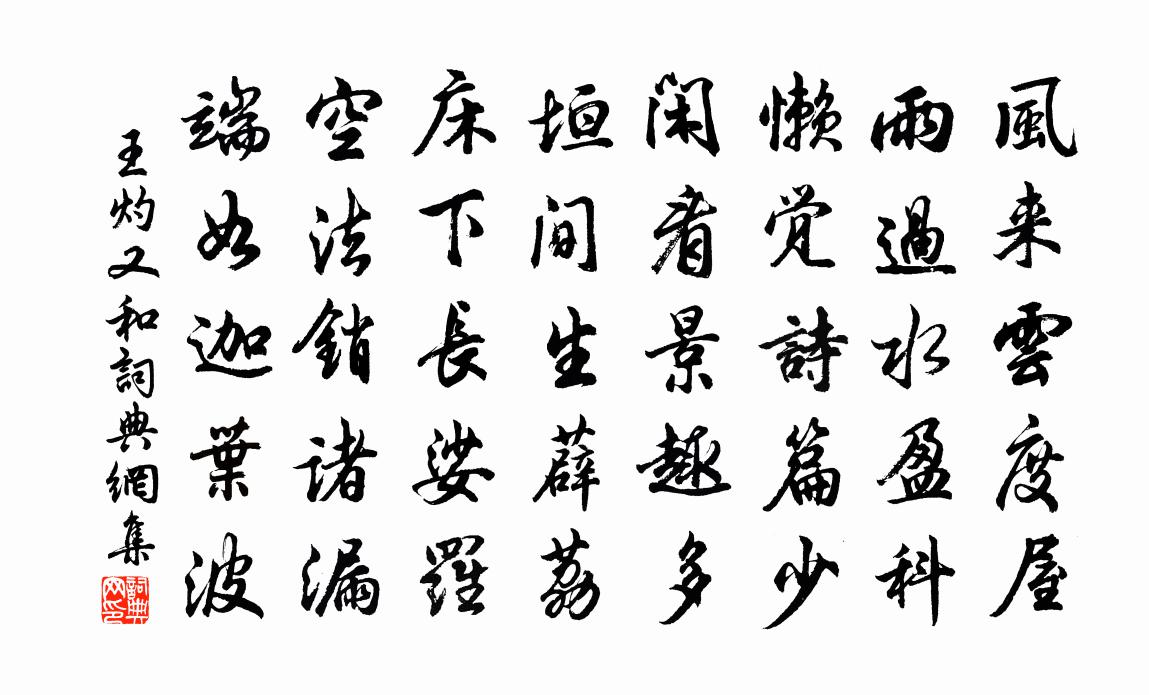 風来雲度屋
雨過水盈科
懒覚詩篇少
闲看景趣多
垣间生薜荔
床下長娑羅
空法銷諸漏
端如迦葉波
王灼又和詞典網集
詞典网印